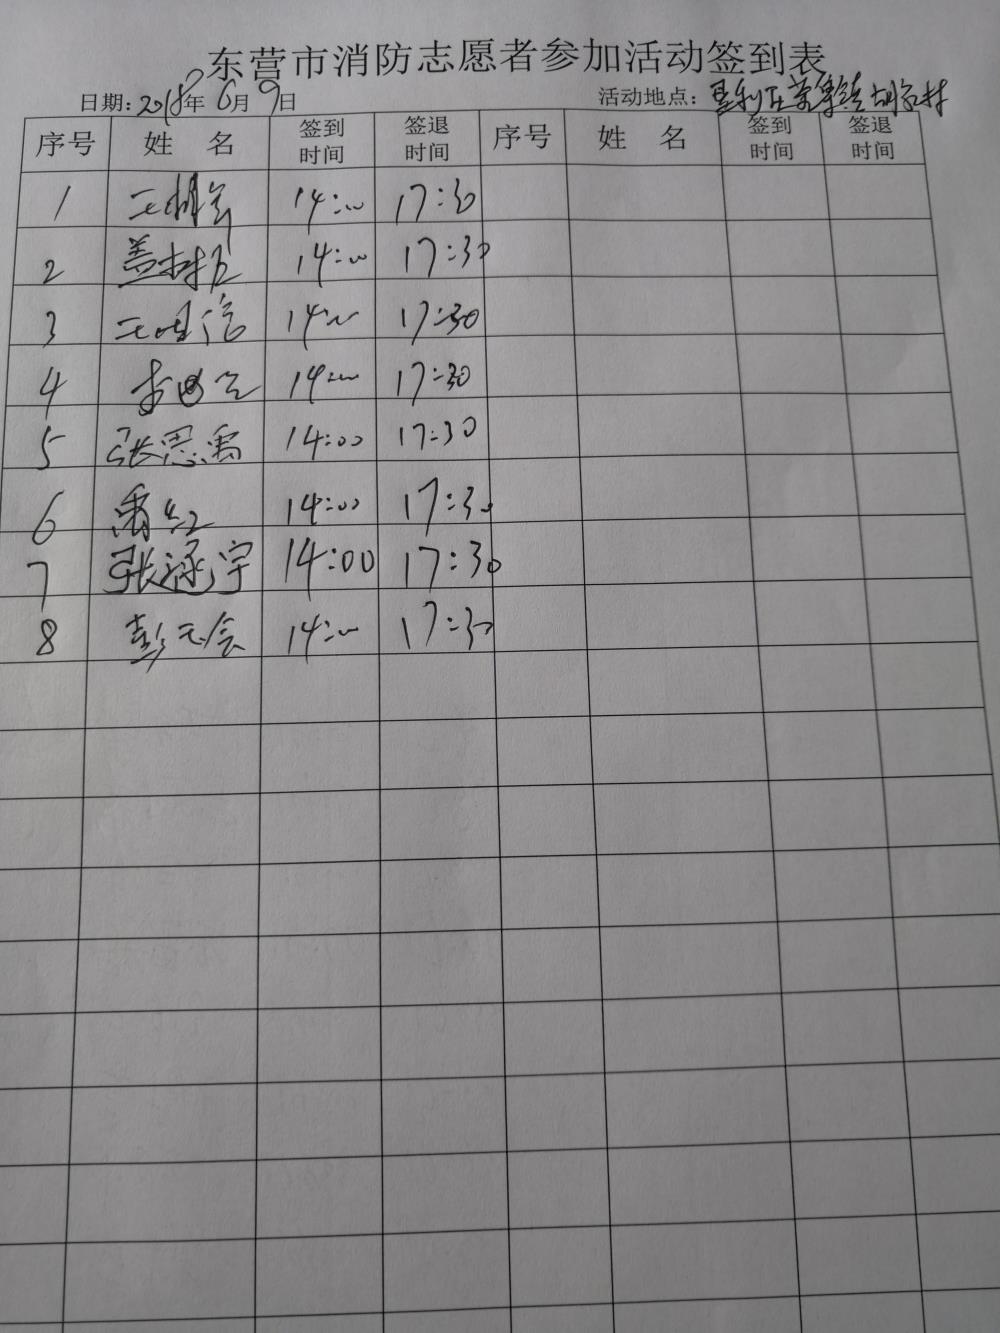 东营市消防志愿者参加活动签到表
日期：2018年6月9日 活动地点：垦利区 胡家村
序号 姓名 签到时间 签退时间 序号 姓名 签到时间 签退时间
1 14:00 17:30
2 盖 14:00 17:30
3 王 信 14:00 17:30
4 14:00 17:30
5 张思禹 14:00 17:30
6 禹红 14:00 17:30
7 张涵宇 14:00 17:30
8 彭 14:00 17:30